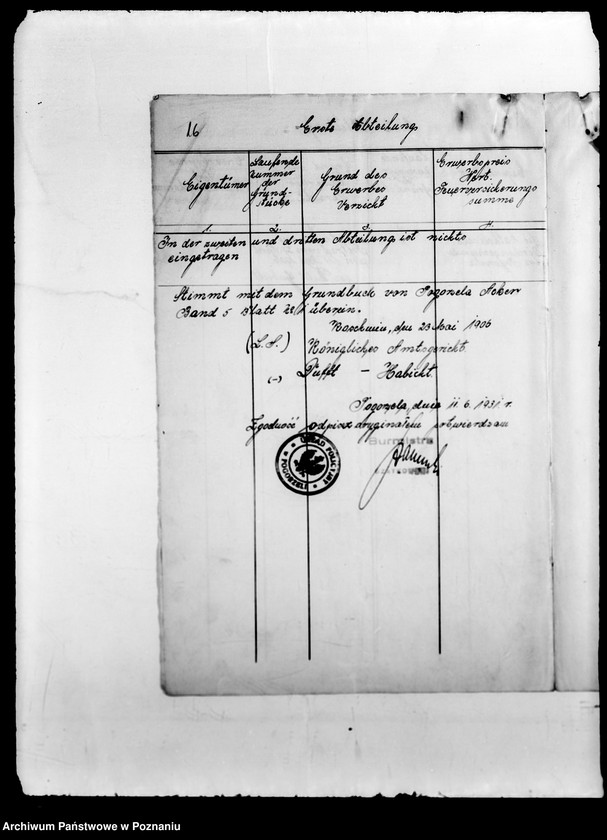 16
Erste Abteilung
Eigentümer
Laufende
nummer
der
Grund-
stücke
Grund des
Erwerbes
Verzicht
Erwerbspreis
Wert.
Feuerversicherungs
summe
1. 2. 3. 4.
In der zweiten und dritten Abteilung ist nichts
eingetragen
Stimmt mit dem Grundbuch von Pogorzela Acker
Band 5 Blatt überein.
den 23 Mai 1906
(L.S.) Königliches Amtsgericht.
(-) - Habicht.
Pogorzela, dnia 11.6.1931 r.
Zgodność odpisu z oryginałem potwierdzam
Burmistrz
URZĄD POLICYJNY
W POGORZELI
Archiwum Państwowe w Poznaniu